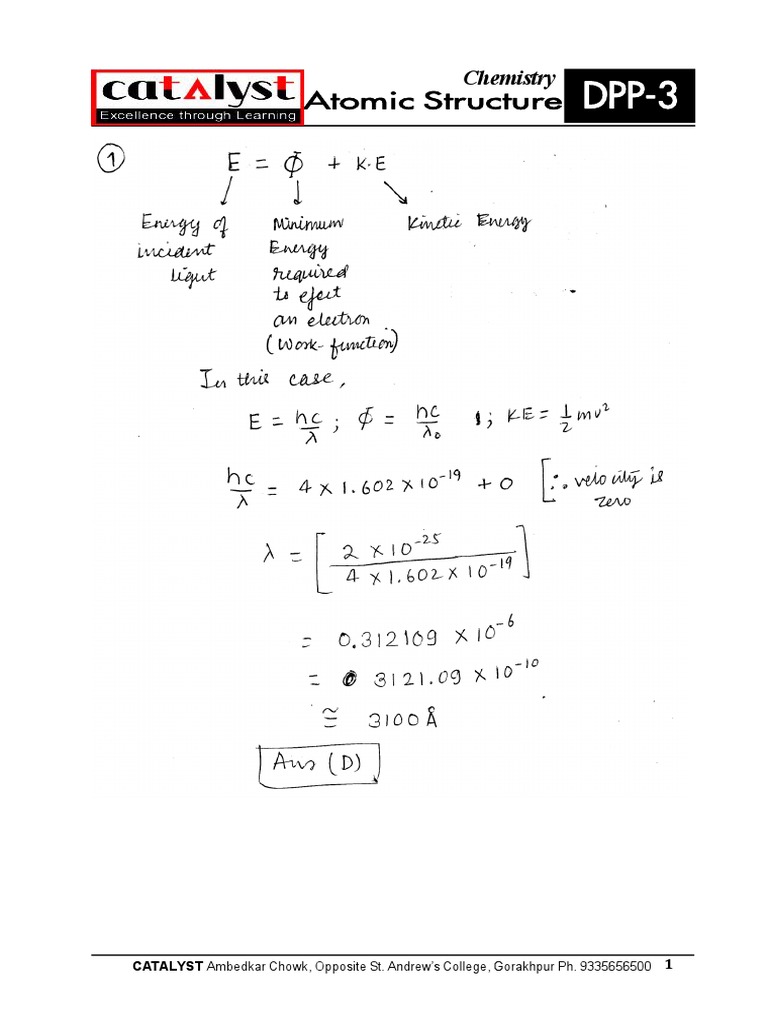 catalyst
Excellence through Learning
Chemistry
Atomic Structure
DPP-3
① E = Φ + K.E
Energy of incident light
Minimum Energy required to eject an electron (Work-function)
Kinetic Energy
In this case,
E = hc/λ ; Φ = hc/λ₀ ; KE = 1/2 mv²
hc/λ = 4 × 1.602 × 10⁻¹⁹ + 0 [∵ velocity is zero
λ = [2 × 10⁻²⁵ / 4 × 1.602 × 10⁻¹⁹]
= 0.312109 × 10⁻⁶
= 3121.09 × 10⁻¹⁰
≅ 3100 Å
Ans (D)
CATALYST Ambedkar Chowk, Opposite St. Andrew's College, Gorakhpur Ph. 9335656500 1